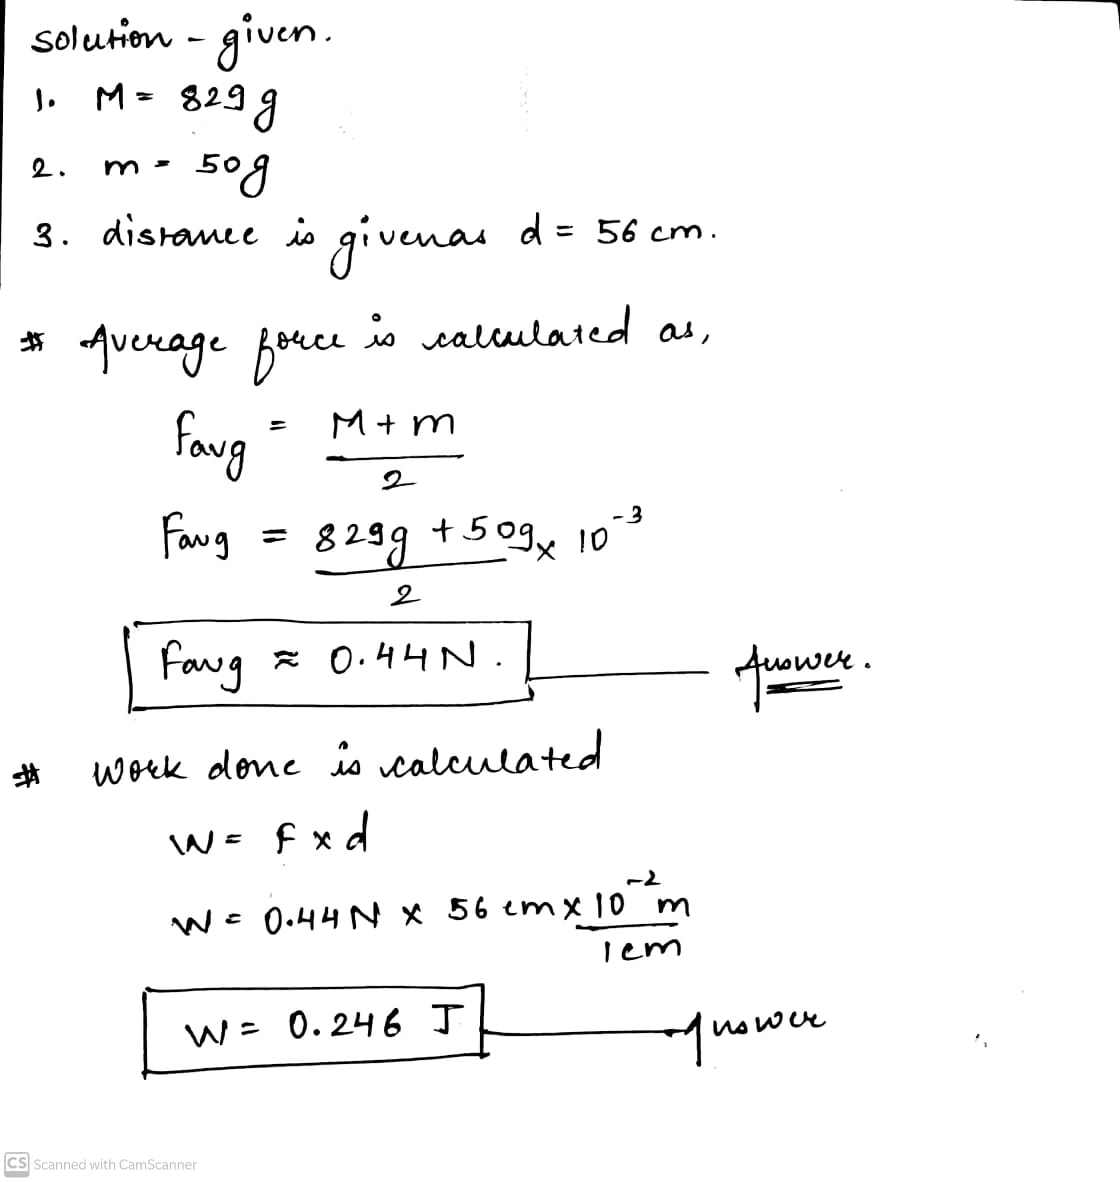 solution - given.
1. M = 829 g
2. m = 50g
3. distance is given as d = 56 cm.
# Average force is calculated as,
Favg = M + m
2
Favg = 829g + 50g x 10^-3
2
Favg ≈ 0.44 N. Answer.
# work done is calculated
W = F x d
W = 0.44 N x 56 cm x 10^-2 m
1cm
W = 0.246 J Answer
CS Scanned with CamScanner